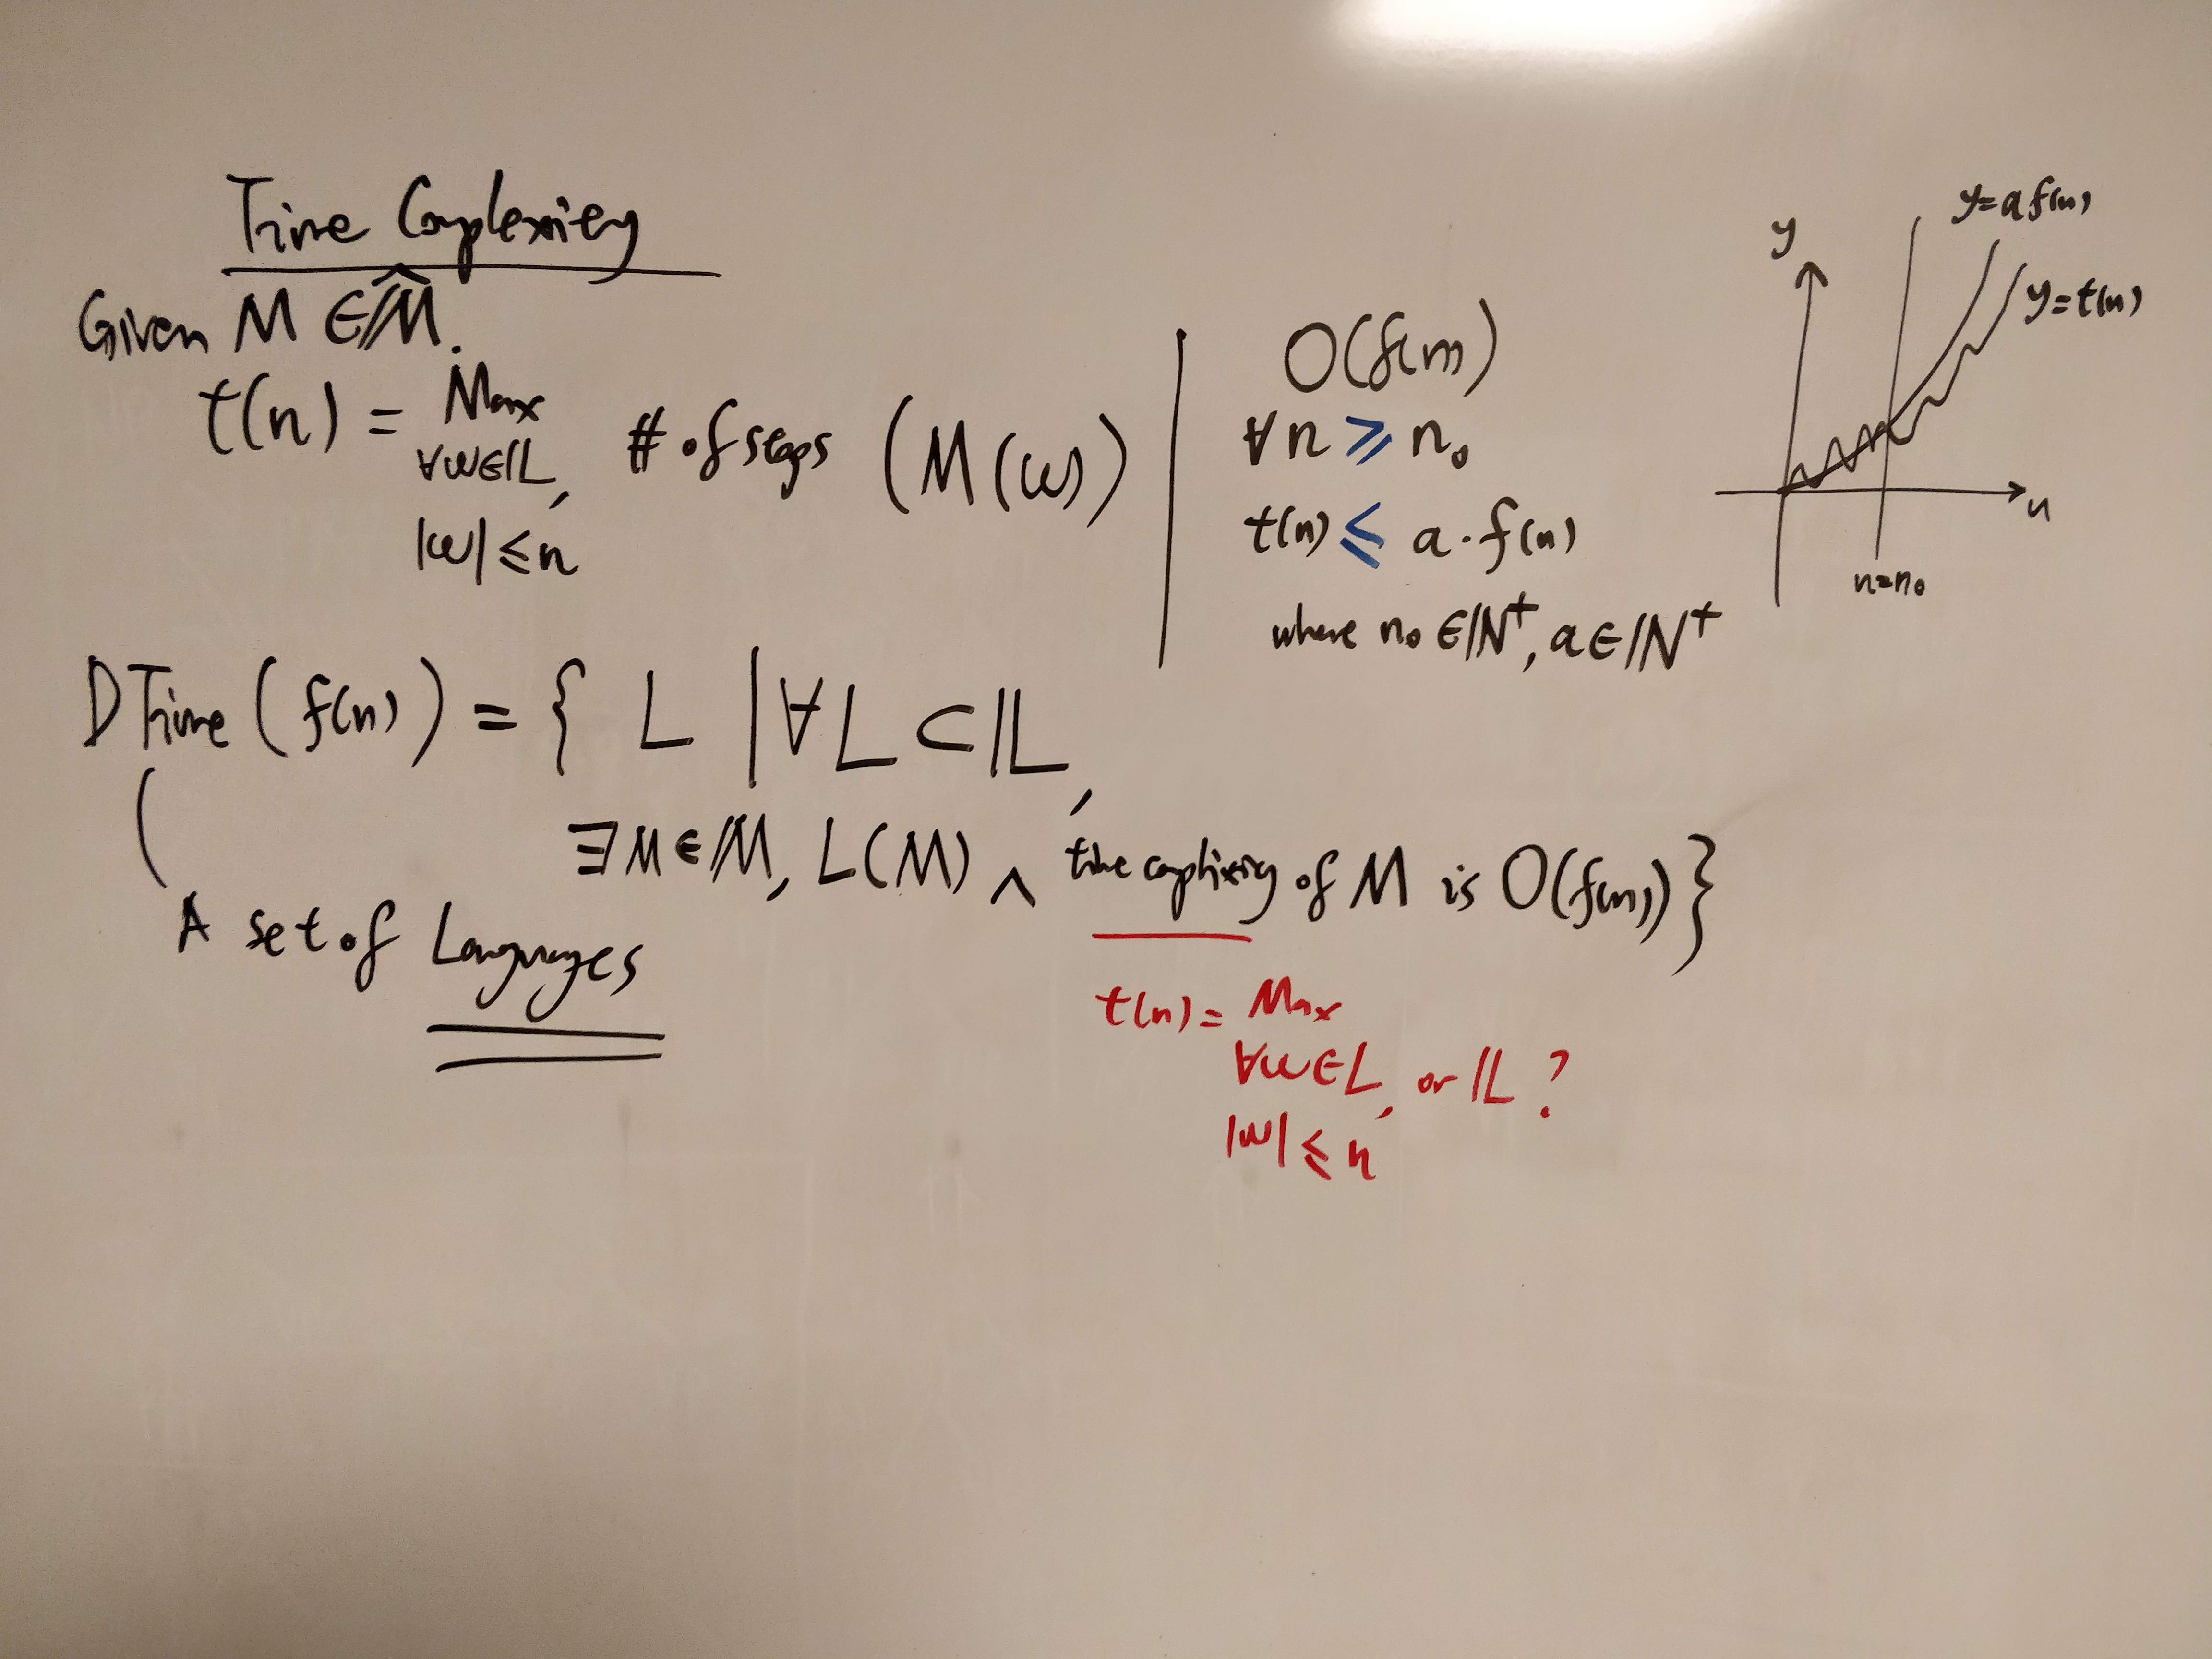 Time Complexity
Given M ∈ 𝕄̂.
t(n) = Max # of steps (M(w))
∀w∈𝕃,
|w| ≤ n
O(f(n))
∀n ≥ n₀
t(n) ≤ a·f(n)
where n₀ ∈ ℕ⁺, a ∈ ℕ⁺
y
y=a f(n)
y=t(n)
n
n=n₀
DTime(f(n)) = { L | ∀L ⊂ 𝕃,
∃M∈𝕄, L(M) ∧ time complixity of M is O(f(n)) }
(
A set of Languages
t(n) = Max
∀w∈L, or 𝕃 ?
|w| ≤ n